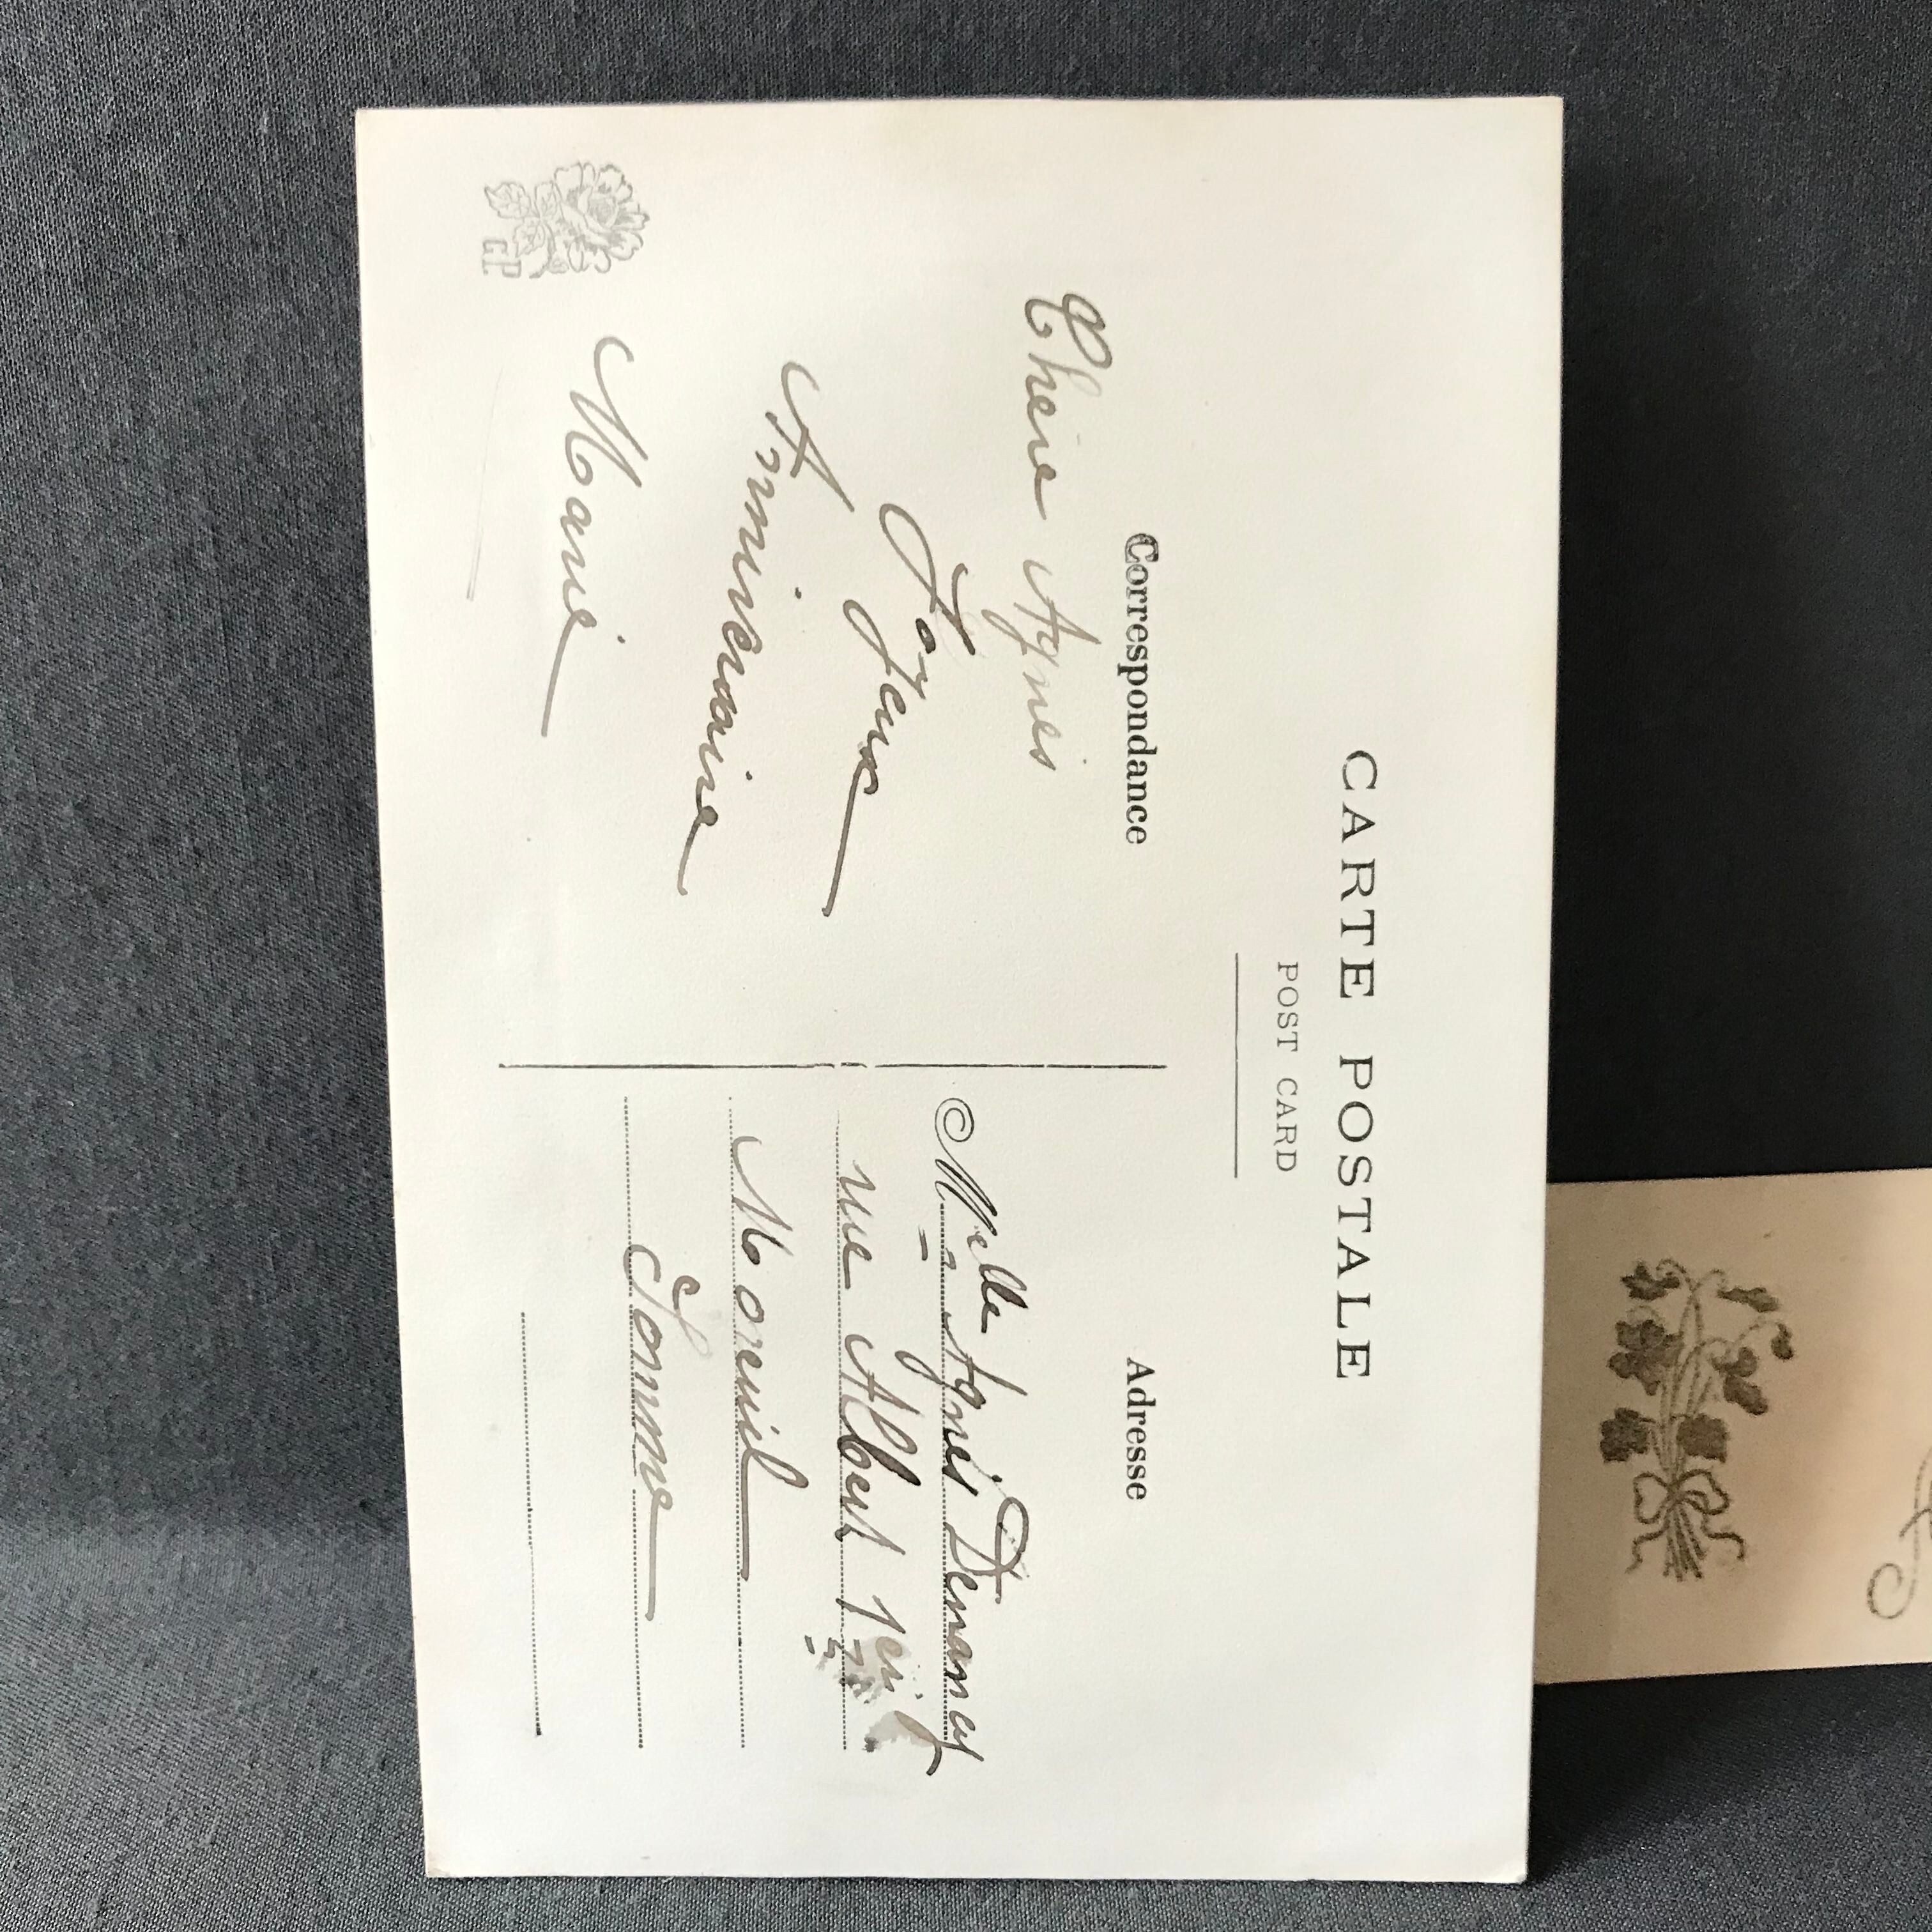 CARTE POSTALE
POST CARD
Correspondance
Chère Agnès
Joyeux
Anniversaire
Marie
Adresse
Melle Agnès
rue Albert 1er
Moreuil
Somme